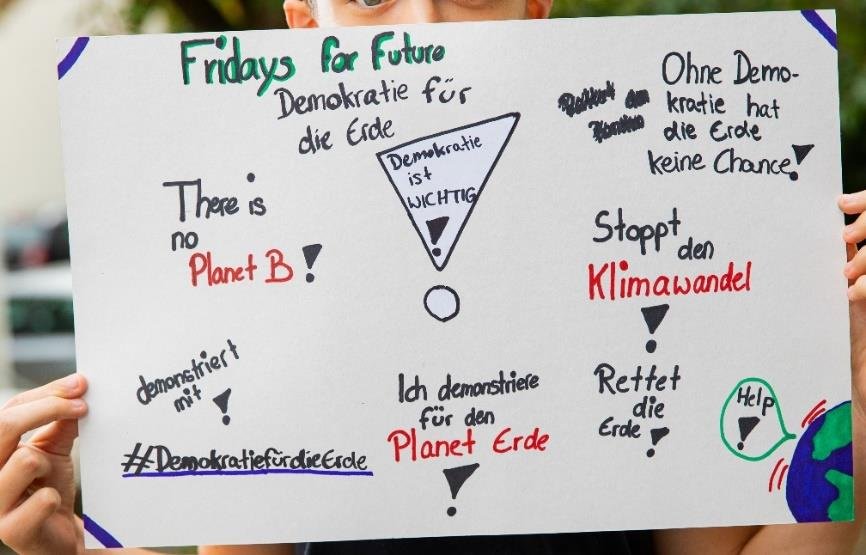 Fridays for Future
Demokratie für
die Erde
Demokratie
ist
WICHTIG
!
Ohne Demo-
kratie hat
die Erde
keine Chance!
There is
no
Planet B!
Stoppt
den
Klimawandel
!
demonstriert
mit !
#DemokratiefürdieErde
Ich demonstriere
für den
Planet Erde
!
Rettet
die
Erde !
Help
!